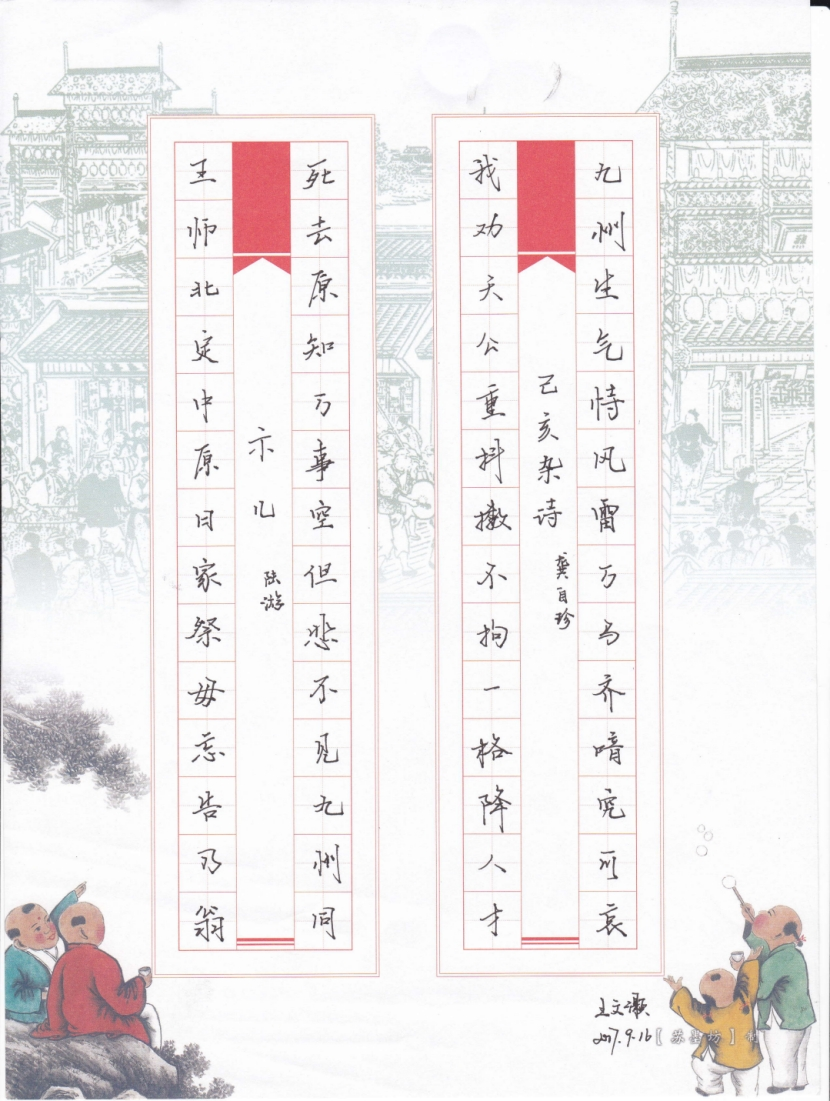 九州生气恃风雷万马齐喑究可哀
己亥杂诗
龚自珍
我劝天公重抖擞不拘一格降人才
死去原知万事空但悲不见九州同
示儿
陆游
王师北定中原日家祭毋忘告乃翁
王文
2017.9.16
【苏墨坊】制